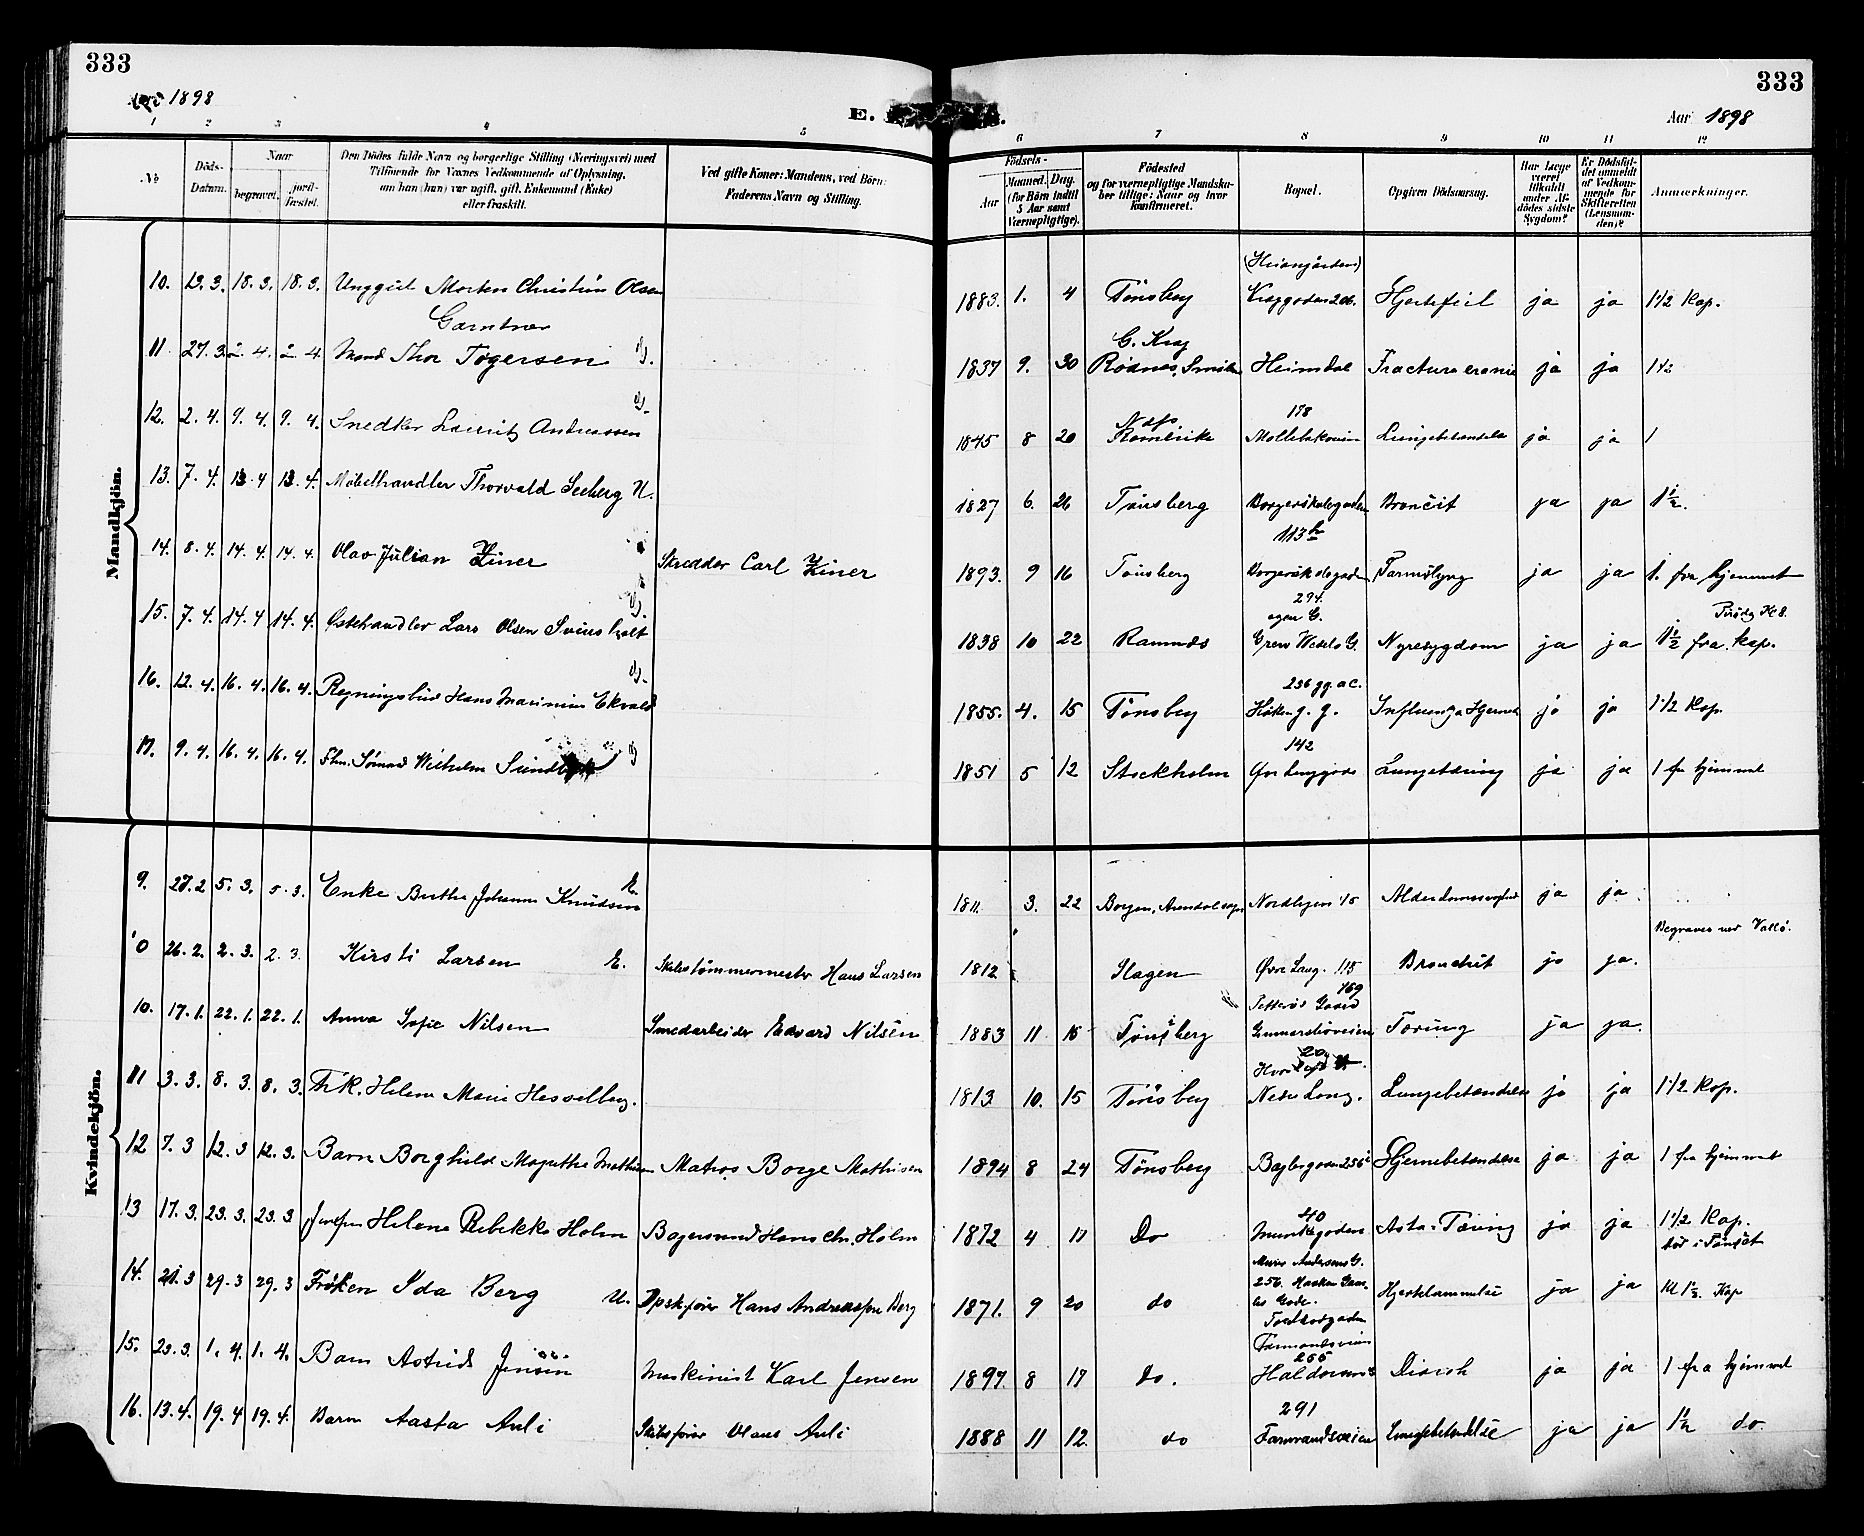 333
333
Aar 1898
E.
Aar 1898
1 2 3 4 5 6 7 8 9 10 11 12
№
Döds-Datum.
Naar
begravet.
jordfæstet.
Den Dödes fulde Navn og borgerlige Stilling (Næringsvei) med
Tilföiende for Voxnes Vedkommende af Oplysning,
om han (hun) var ugift, gift, Enkemand (Enke)
eller fraskilt.
Ved gifte Koner: Mandens, ved Börn:
Faderens Navn og Stilling.
Födsels-
Aar
Maaned.
Dag.
(for Börn indtil
5 Aar samt
Værnepligtige).
Födested
og for værnepligtige Mandskaber tillige: Naar og hvor
konfirmeret.
Bopæl.
Opgiven Dödsaarsag.
Har Læge
været
tilkaldt
under Afdödes sidste
Sygdom?
Er Dödsfaldet anmeldt
af Vedkommende for
Skifteretten
(Lensmanden)?
Anmærkninger.
Mandkjön.
10. 13.3. 18.3. 18.3. Unggut Morten Christian Olsen 1883. 1. 4 Tönsberg 206. Hjertefeil ja ja 1 1/2 Kap.
Garntner
11 27.3. 2.4. 2.4. Mand Thor Tøgersen G. 1837 9. 30 Heimdal Fractura cranii ja ja 1 1/2
12. 2.4. 9.4. 9.4. Snedker Lauritz Andreassen G. 1845 8 20 Romerike 178 Lungebetændelse ja ja 1
13. 7.4. 13.4 13.4. Møbelhandler Thorvald Seeberg U. 1827 6. 26 Tönsberg Borgerskolegaden Broncit ja ja 1 1/2.
14. 8.4. 14.4. 14.4. Olav Julian Skrædder Carl 1893. 9 16 Tönsberg 113 b Borgerskolegaden Tarmslyng ja ja 1. fra hjemmet
15. 7.4. 14.4 14.4. Ostehandler Lars Olsen G. 1838 10 22 Ramnes 294. egen G. Grev Wedels G. Nyresygdom ja ja 1 1/2 fra Kap.
16. 12.4. 16.4. 16.4. Regningsbud Hans Marinius Ekvald G. 1855. 4. 15 Tönsberg 236 Influenza ja ja 1 1/2 Kap.
17. 9.4. 16.4. 16.4. Fhv. Sömand Wilhelm G 1851 5 12 Stockholm 142 Lungetæring ja ja 1 fra hjemmet
Kvindekjön.
9. 27.2 5.3. 5.3. Enke Berthe Johanne Knudsen E. 1811. 3. 22 Nordbyen 15 Alderdomssvaghed ja ja
10 26.2. 2.3. 2.3. Kirsti Larsen E. Skibstømmermester Hans Larsen 1812 Slagen Øvre Lang. 115 Bronchit ja ja. Begraves ved Vallö.
10. 17.1. 22.1. 22.1. Anna Sofie Nilsen Smedarbeider Edvard Nilsen 1883 11 16 Tönsberg 169 Tæring ja ja.
11 3.3. 8.3. 8.3. Frk. Helene Marie Hesselberg. 1813 10. 15 Tönsberg Nedre Lang. Lungebetændelse ja ja 1 1/2 Kap.
12 7.3 12.3 12.3. Barn Borghild Mathisen Matros Borge Mathisen 1894 8 24 Tönsberg Baglergaden 256 Hjernebetændelse ja ja 1 fra hjemmet
13 17.3. 23.3. 23.3 Helene Rebekka Holm Hans Chr. Holm 1872 4 17 Do 40 Munkegaden Tæring ja ja 1 1/2 Kap.
14. 21.3 29.3 29.3 Frøken Ida Berg U. Opskfører Hans Berg 1871. 9 20 do 256. Haakon Gamles Gade. Hjertelammelse ja ja Kl 1 1/2. Kap
15. 23.3. 1.4. 1.4. Barn Astrid Jensen Maskinist Karl Jensen 1897. 8 17 do. 255 ja ja 1 fra hjemmet
16. 13.4. 19.4 19.4. Barn Aasta Auli Skibsfører Olaus Auli 1888 11 12. do 291 Farmandsveien Lungebetændelse ja ja 1 1/2 do.